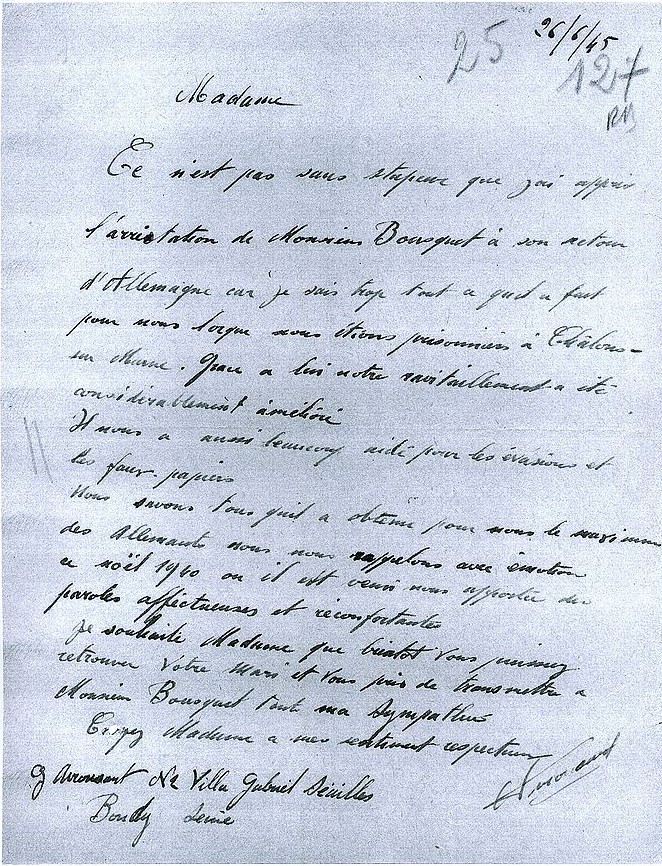 26/6/45
25
127
RB
Madame
Ce n'est pas sans stupeur que j'ai appris
l'arrestation de Monsieur Bousquet à son retour
d'Allemagne car je sais trop tout a quil a fait
pour nous lorque nous étions prisonniers à Châlons-
sur Marne. Grace a lui notre ravitaillement a été
considérablement amélioré
Il nous a aussi beaucoup aidé pour les évasions et
les faux papiers
Nous savons tous quil a obtenu pour nous le maximum
des Allemands nous nous rappelons avec émotion
ce noël 1940 ou il est venu nous apporter des
paroles affectueuses et réconfortantes
Je souhaite Madame que bientot vous puissiez
retrouver votre mari et vous pris de transmettre a
Monsieur Bousquet toute ma sympathie
Croyez Madame a mes sentiment respectueux
G N2 Villa Gabriel Séailles
Bondy Seine